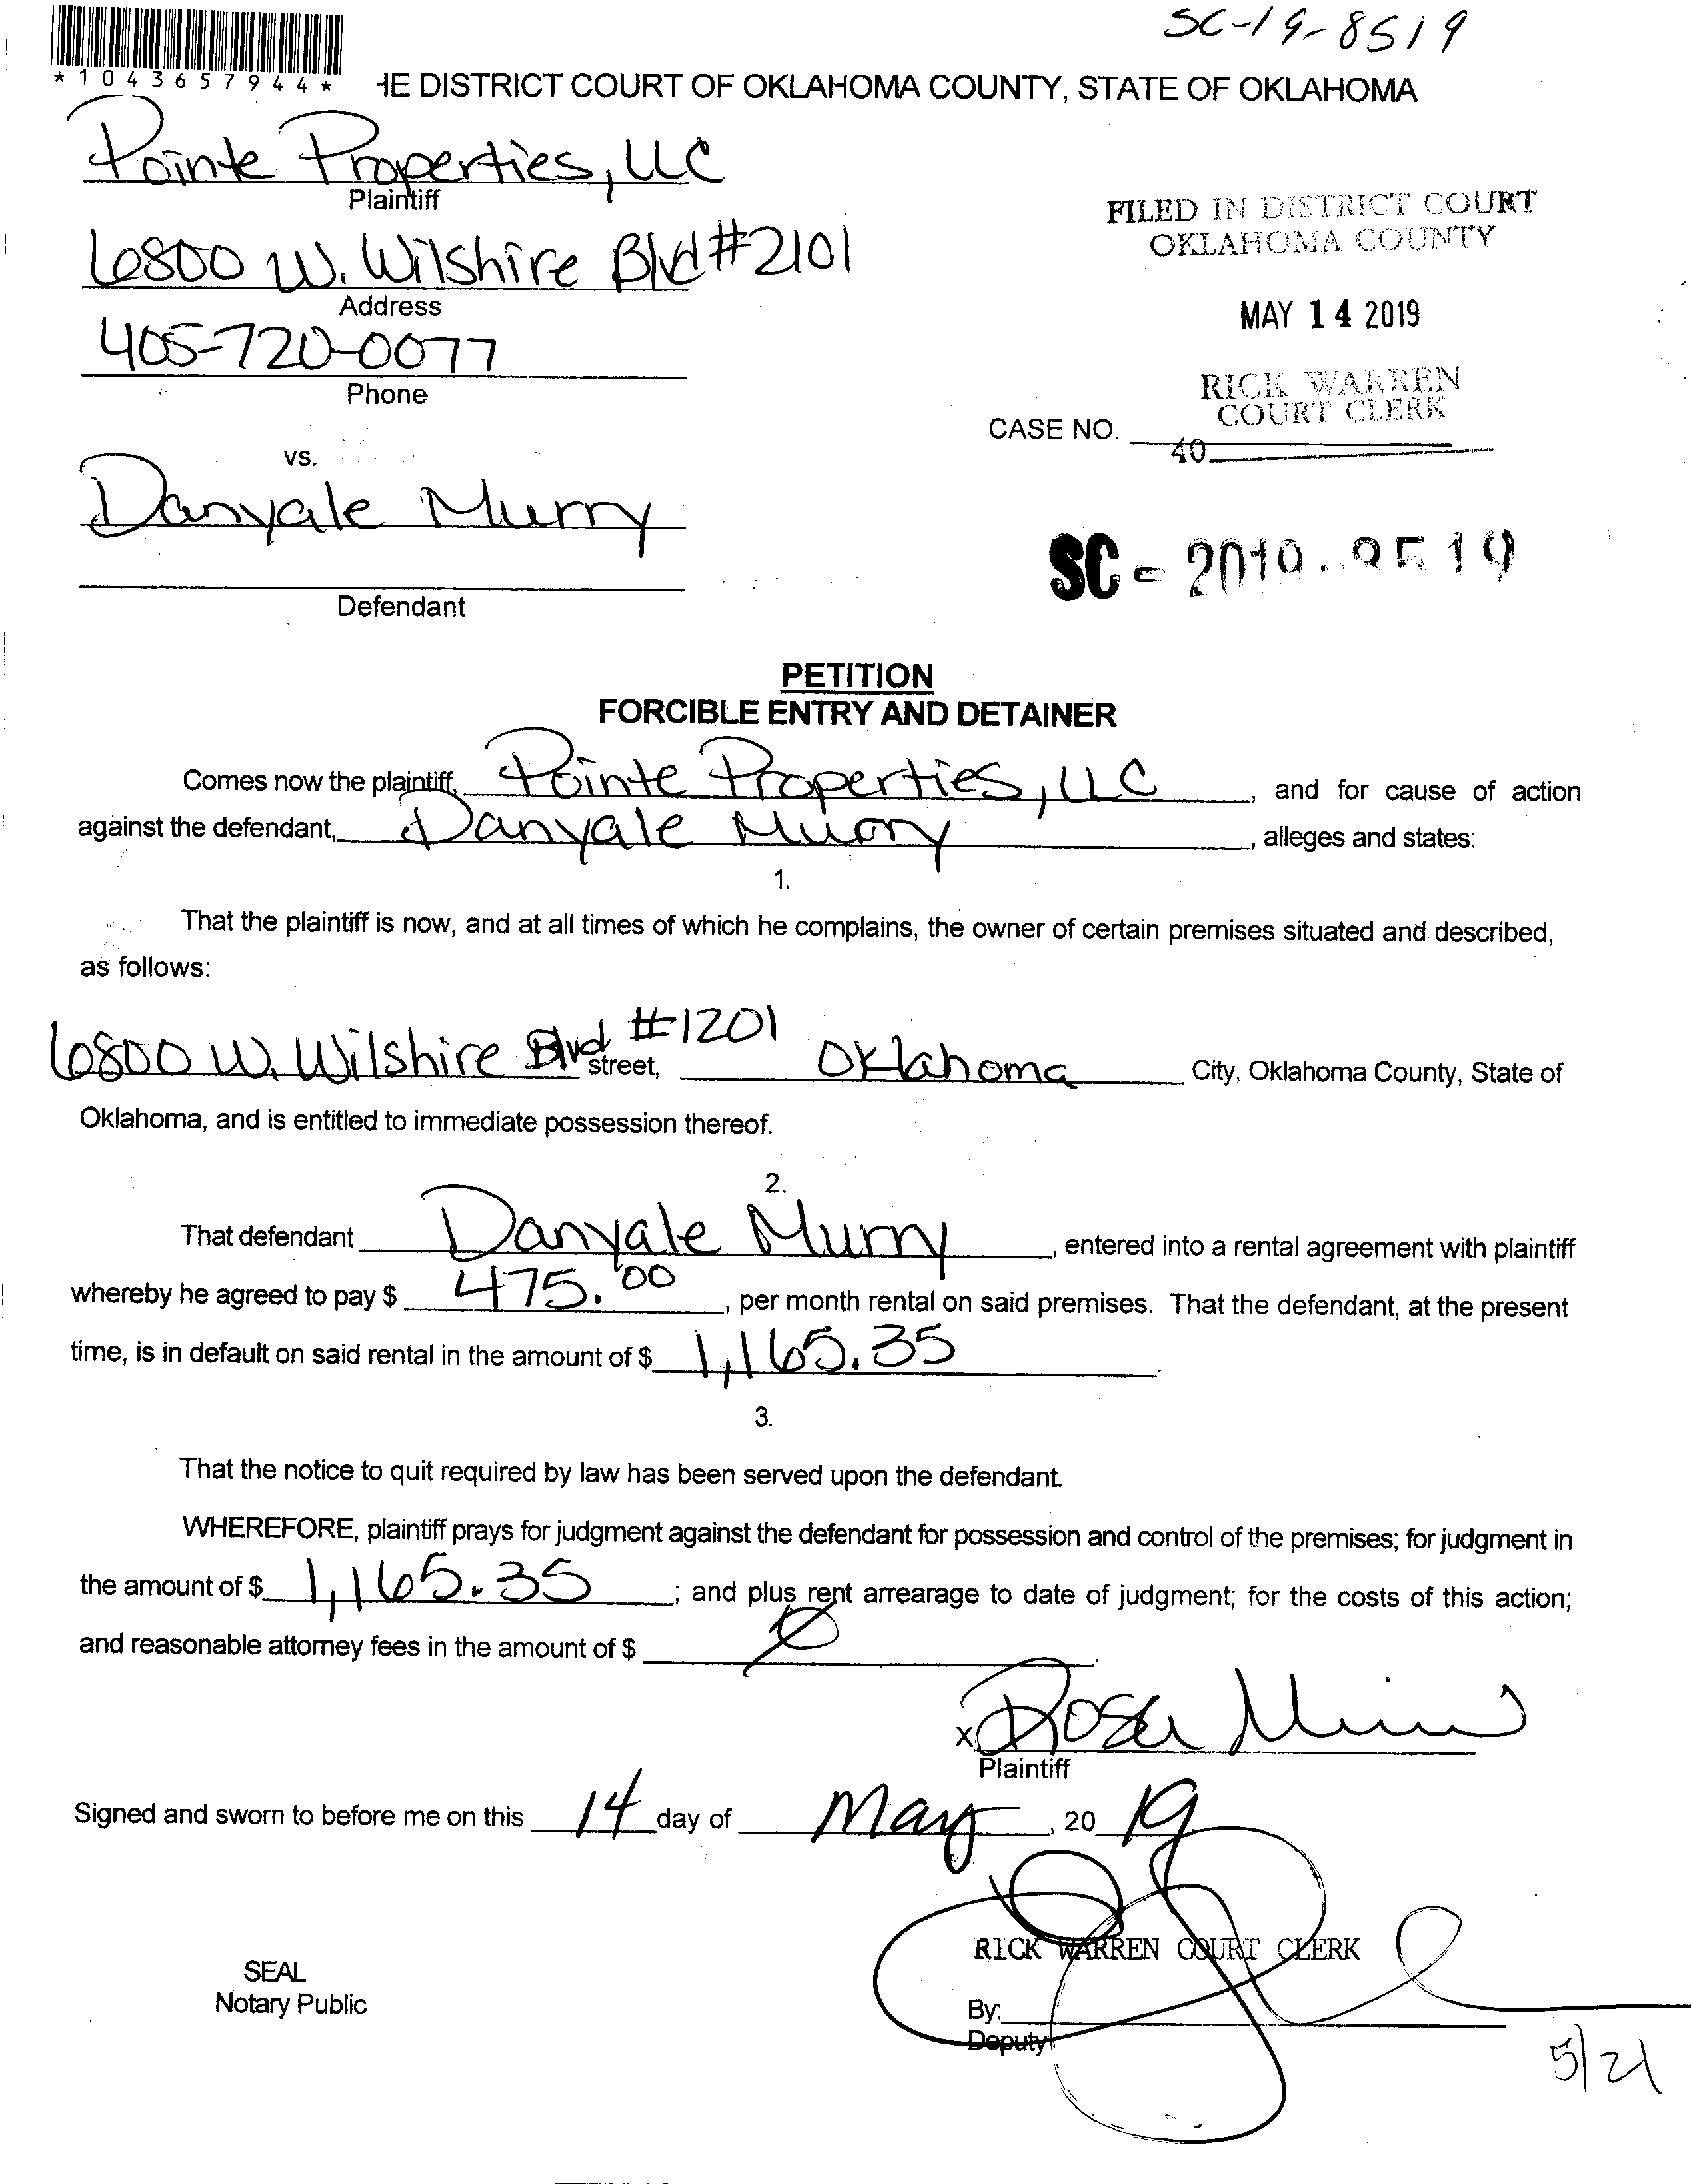 SC-19-8519
*1043657944*
HE DISTRICT COURT OF OKLAHOMA COUNTY, STATE OF OKLAHOMA
Pointe Properties, LLC
Plaintiff
FILED IN DISTRICT COURT
OKLAHOMA COUNTY
6800 W. Wilshire Blvd #2101
Address
MAY 14 2019
405-720-0077
Phone
RICK WARREN
COURT CLERK
CASE NO.
40
vs.
Danyale Murry
SC - 2019-8519
Defendant
PETITION
FORCIBLE ENTRY AND DETAINER
Comes now the plaintiff, Pointe Properties, LLC, and for cause of action
against the defendant, Danyale Murry, alleges and states:
1.
That the plaintiff is now, and at all times of which he complains, the owner of certain premises situated and described,
as follows:
6800 W. Wilshire Blvd #1201 street, Oklahoma City, Oklahoma County, State of
Oklahoma, and is entitled to immediate possession thereof.
2.
That defendant Danyale Murry, entered into a rental agreement with plaintiff
whereby he agreed to pay $ 475.00, per month rental on said premises. That the defendant, at the present
time, is in default on said rental in the amount of $ 1,165.35.
3.
That the notice to quit required by law has been served upon the defendant.
WHEREFORE, plaintiff prays for judgment against the defendant for possession and control of the premises; for judgment in
the amount of $ 1,165.35; and plus rent arrearage to date of judgment; for the costs of this action;
and reasonable attorney fees in the amount of $ Ø.
X Rosa
Plaintiff
Signed and sworn to before me on this 14 day of May, 20 19
RICK WARREN COURT CLERK
SEAL
Notary Public
By:
Deputy
5/21